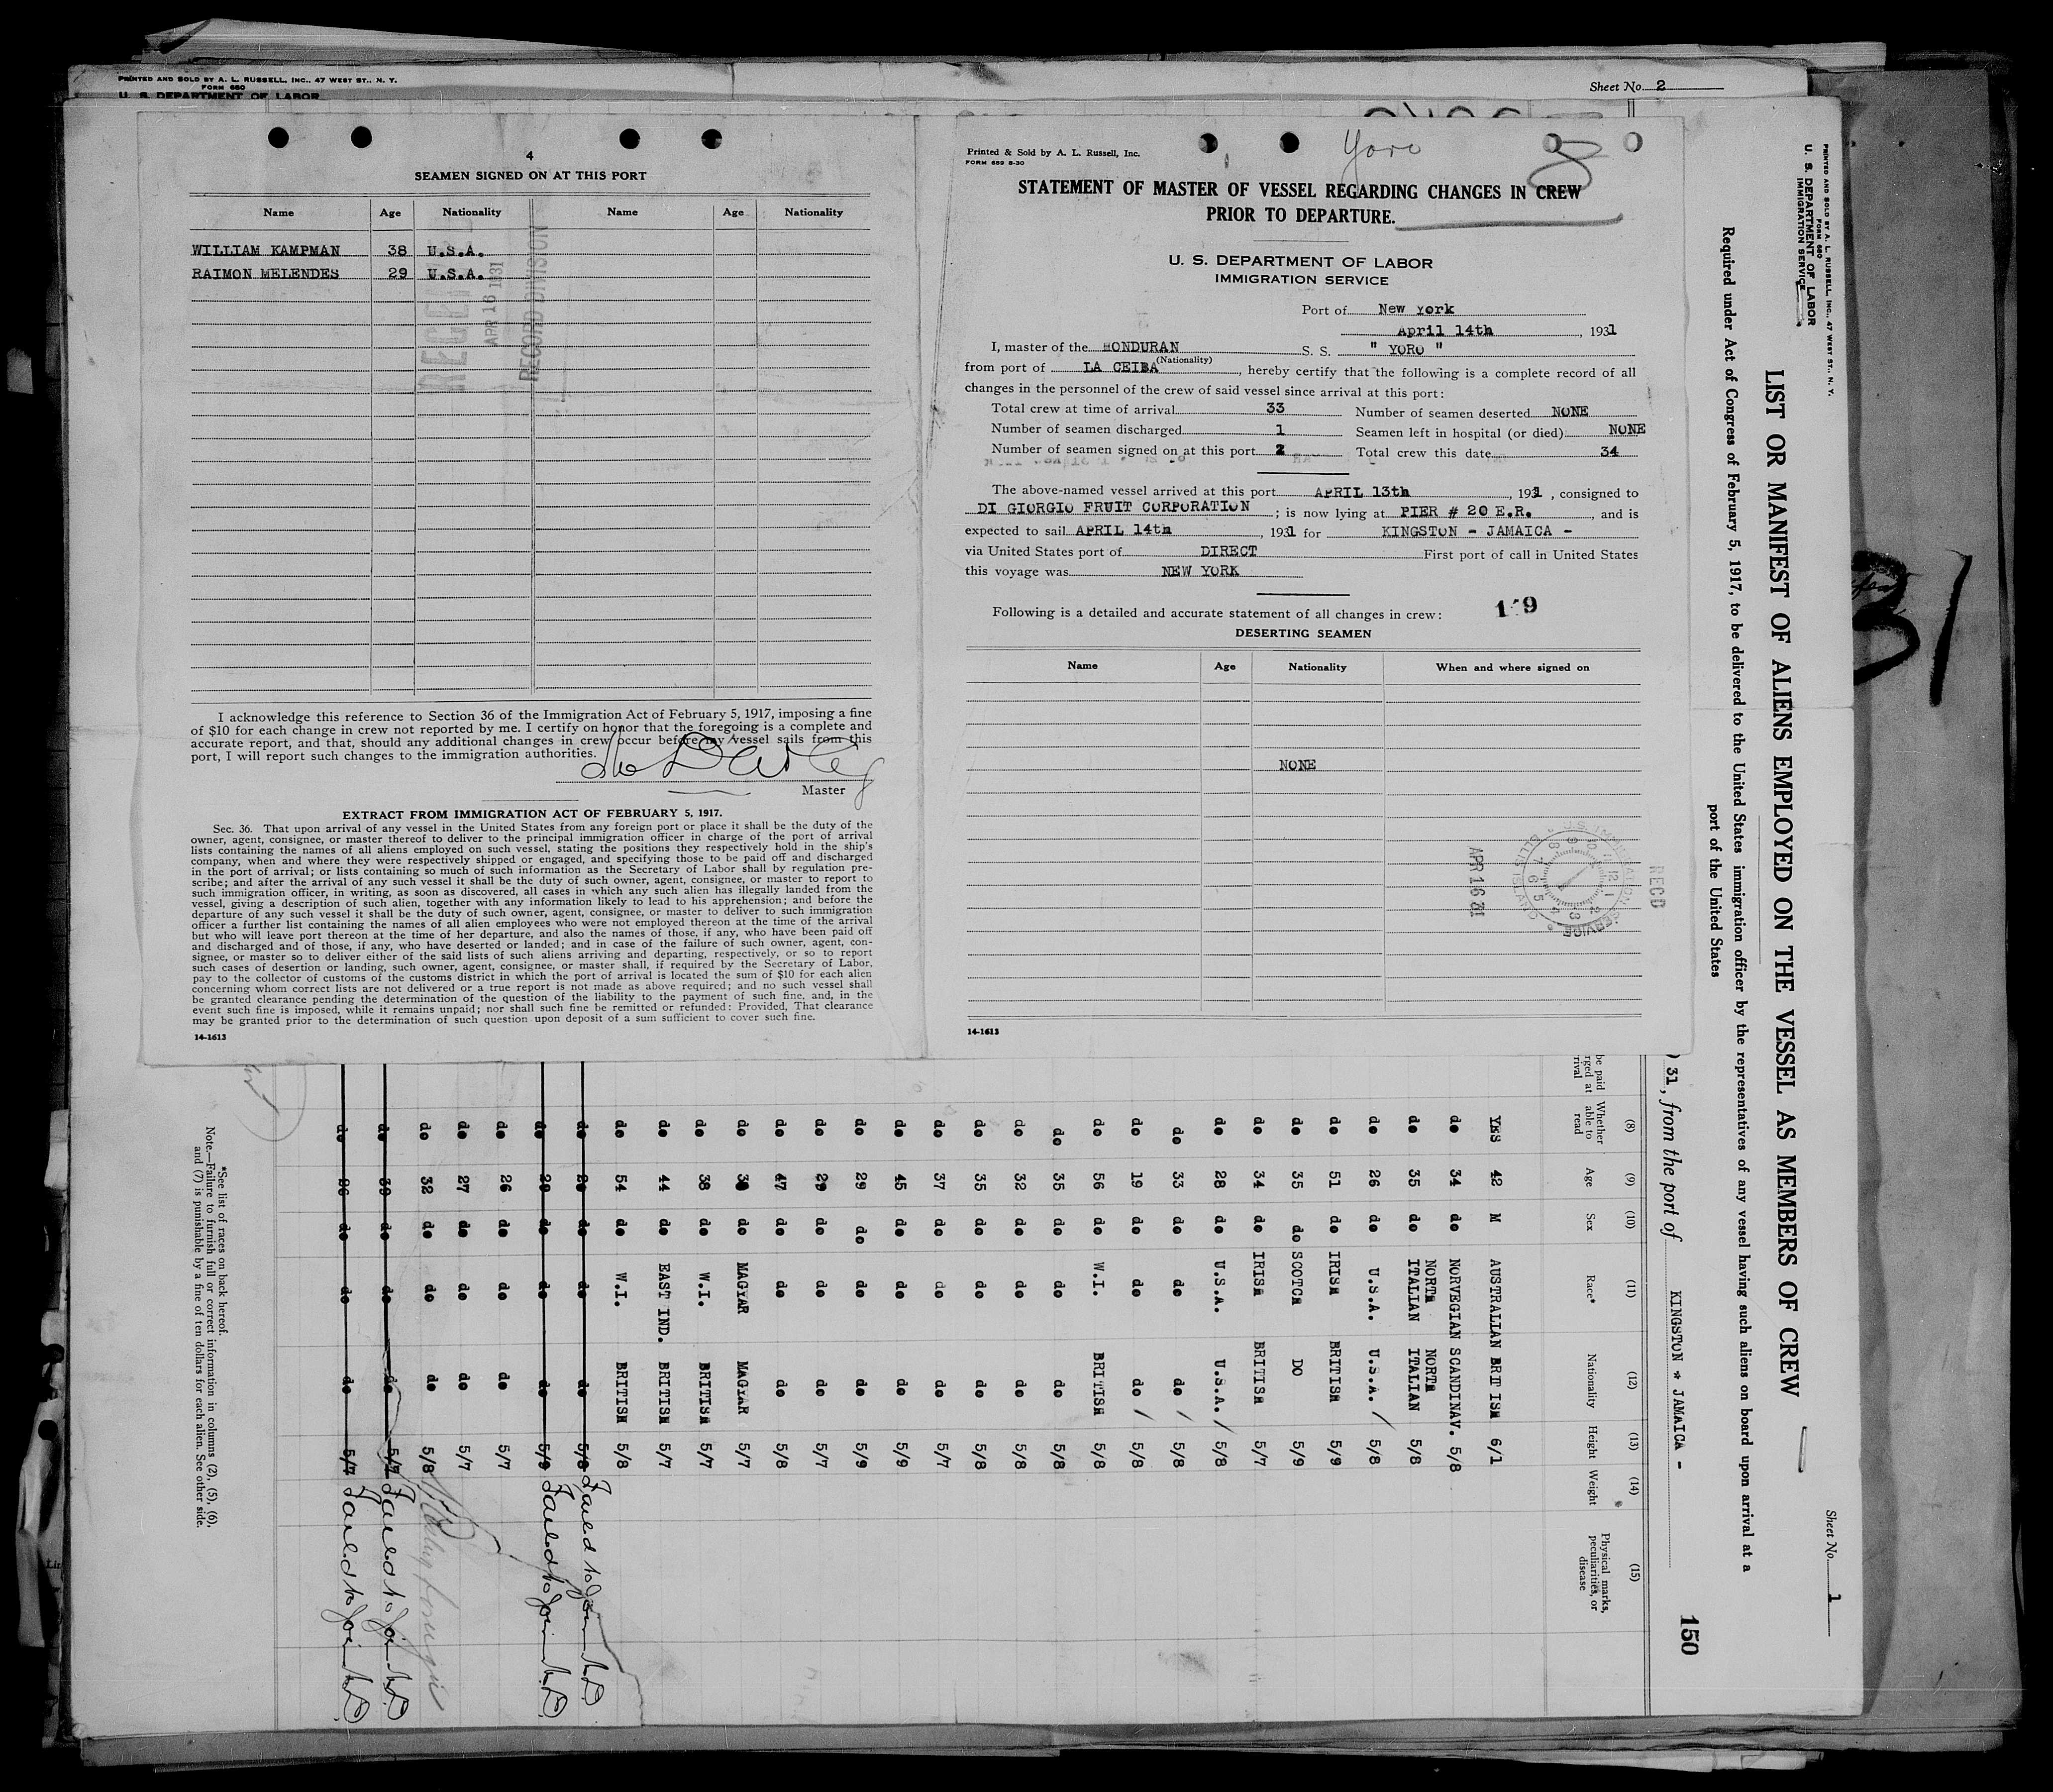 PRINTED AND SOLD BY A. L. RUSSELL, INC., 47 WEST ST., N. Y.
FORM 680
U. S. DEPARTMENT OF LABOR
Sheet No. 2
4
SEAMEN SIGNED ON AT THIS PORT
Name Age Nationality Name Age Nationality
WILLIAM KAMPMAN 38 U.S.A.
RAIMON MELENDES 29 U.S.A.
RECEIVED
APR 16 1931
RECORD DIVISION
I acknowledge this reference to Section 36 of the Immigration Act of February 5, 1917, imposing a fine
of $10 for each change in crew not reported by me. I certify on honor that the foregoing is a complete and
accurate report, and that, should any additional changes in crew occur before my vessel sails from this
port, I will report such changes to the immigration authorities.
Master
EXTRACT FROM IMMIGRATION ACT OF FEBRUARY 5, 1917.
Sec. 36. That upon arrival of any vessel in the United States from any foreign port or place it shall be the duty of the
owner, agent, consignee, or master thereof to deliver to the principal immigration officer in charge of the port of arrival
lists containing the names of all aliens employed on such vessel, stating the positions they respectively hold in the ship's
company, when and where they were respectively shipped or engaged, and specifying those to be paid off and discharged
in the port of arrival; or lists containing so much of such information as the Secretary of Labor shall by regulation pre-
scribe; and after the arrival of any such vessel it shall be the duty of such owner, agent, consignee, or master to report to
such immigration officer, in writing, as soon as discovered, all cases in which any such alien has illegally landed from the
vessel, giving a description of such alien, together with any information likely to lead to his apprehension; and before the
departure of any such vessel it shall be the duty of such owner, agent, consignee, or master to deliver to such immigration
officer a further list containing the names of all alien employees who were not employed thereon at the time of the arrival
but who will leave port thereon at the time of her departure, and also the names of those, if any, who have been paid off
and discharged and of those, if any, who have deserted or landed; and in case of the failure of such owner, agent, con-
signee, or master so to deliver either of the said lists of such aliens arriving and departing, respectively, or so to report
such cases of desertion or landing, such owner, agent, consignee, or master shall, if required by the Secretary of Labor,
pay to the collector of customs of the customs district in which the port of arrival is located the sum of $10 for each alien
concerning whom correct lists are not delivered or a true report is not made as above required; and no such vessel shall
be granted clearance pending the determination of the question of the liability to the payment of such fine, and, in the
event such fine is imposed, while it remains unpaid; nor shall such fine be remitted or refunded: Provided, That clearance
may be granted prior to the determination of such question upon deposit of a sum sufficient to cover such fine.
14-1613
Printed & Sold by A. L. Russell, Inc.
FORM 689 8-30
Yoro
STATEMENT OF MASTER OF VESSEL REGARDING CHANGES IN CREW
PRIOR TO DEPARTURE.
U. S. DEPARTMENT OF LABOR
IMMIGRATION SERVICE
Port of New York
April 14th, 1931
I, master of the HONDURAN S. S. " YORO "
(Nationality)
from port of LA CEIBA, hereby certify that the following is a complete record of all
changes in the personnel of the crew of said vessel since arrival at this port:
Total crew at time of arrival 33 Number of seamen deserted NONE
Number of seamen discharged 1 Seamen left in hospital (or died) NONE
Number of seamen signed on at this port 2 Total crew this date 34
The above-named vessel arrived at this port APRIL 13th, 1931, consigned to
DI GIORGIO FRUIT CORPORATION; is now lying at PIER # 20 E.R., and is
expected to sail APRIL 14th, 1931 for KINGSTON - JAMAICA -
via United States port of DIRECT First port of call in United States
this voyage was NEW YORK
Following is a detailed and accurate statement of all changes in crew:
DESERTING SEAMEN
Name Age Nationality When and where signed on
NONE
APR 16 31
RECD
U.S. IMMIGRATION SERVICE
ELLIS ISLAND
14-1613
PRINTED AND SOLD BY A. L. RUSSELL, INC., 47 WEST ST., N. Y.
FORM 680
U. S. DEPARTMENT OF LABOR
IMMIGRATION SERVICE
Sheet No. 1
LIST OR MANIFEST OF ALIENS EMPLOYED ON THE VESSEL AS MEMBERS OF CREW
Required under Act of Congress of February 5, 1917, to be delivered to the United States immigration officer by the representatives of any vessel having such aliens on board upon arrival at a
port of the United States
150
31, from the port of KINGSTON * JAMAICA -
(8) (9) (10) (11) (12) (13) (14) (15)
Whether able to read Age Sex Race* Nationality Height Weight Physical marks, peculiarities, or disease
YES 42 M AUSTRALIAN BRIT ISH 6/1
do 34 do NORVEGIAN SCANDINAV. 5/8
do 35 do NORTH ITALIAN NORTH ITALIAN 5/8
do 26 do U.S.A. U.S.A. 5/8
do 51 do IRISH BRITISH 5/9
do 35 do SCOTCH DO 5/9
do 34 do IRISH BRITISH 5/7
do 28 do U.S.A. U.S.A. 5/8
do 33 do do do 5/8
do 19 do do do 5/8
do 56 do W.I. BRITISH 5/8
do 35 do do do 5/8
do 32 do do do 5/8
do 35 do do do 5/8
do 37 do do do 5/7
do 45 do do do 5/9
do 29 do do do 5/9
do 29 do do do 5/7
do 47 do do do 5/8
do do MAGYAR MAGYAR 5/7
do 38 do W.I. BRITISH 5/7
do 44 do EAST IND. BRITISH 5/7
do 54 do W.I. BRITISH 5/8
do do do do 5/8 Failed to Join
do 29 do do do 5/9 Failed to Join
do 26 do do do 5/7
do 27 do do do 5/7
do 32 do do do 5/8
do 39 do do do 5/7 Failed to Join
do 26 do do do 5/7 Failed to Join
*See list of races on back hereof.
Note.—Failure to furnish full or correct information in columns (2), (5), (6),
and (7) is punishable by a fine of ten dollars for each alien. See other side.
31